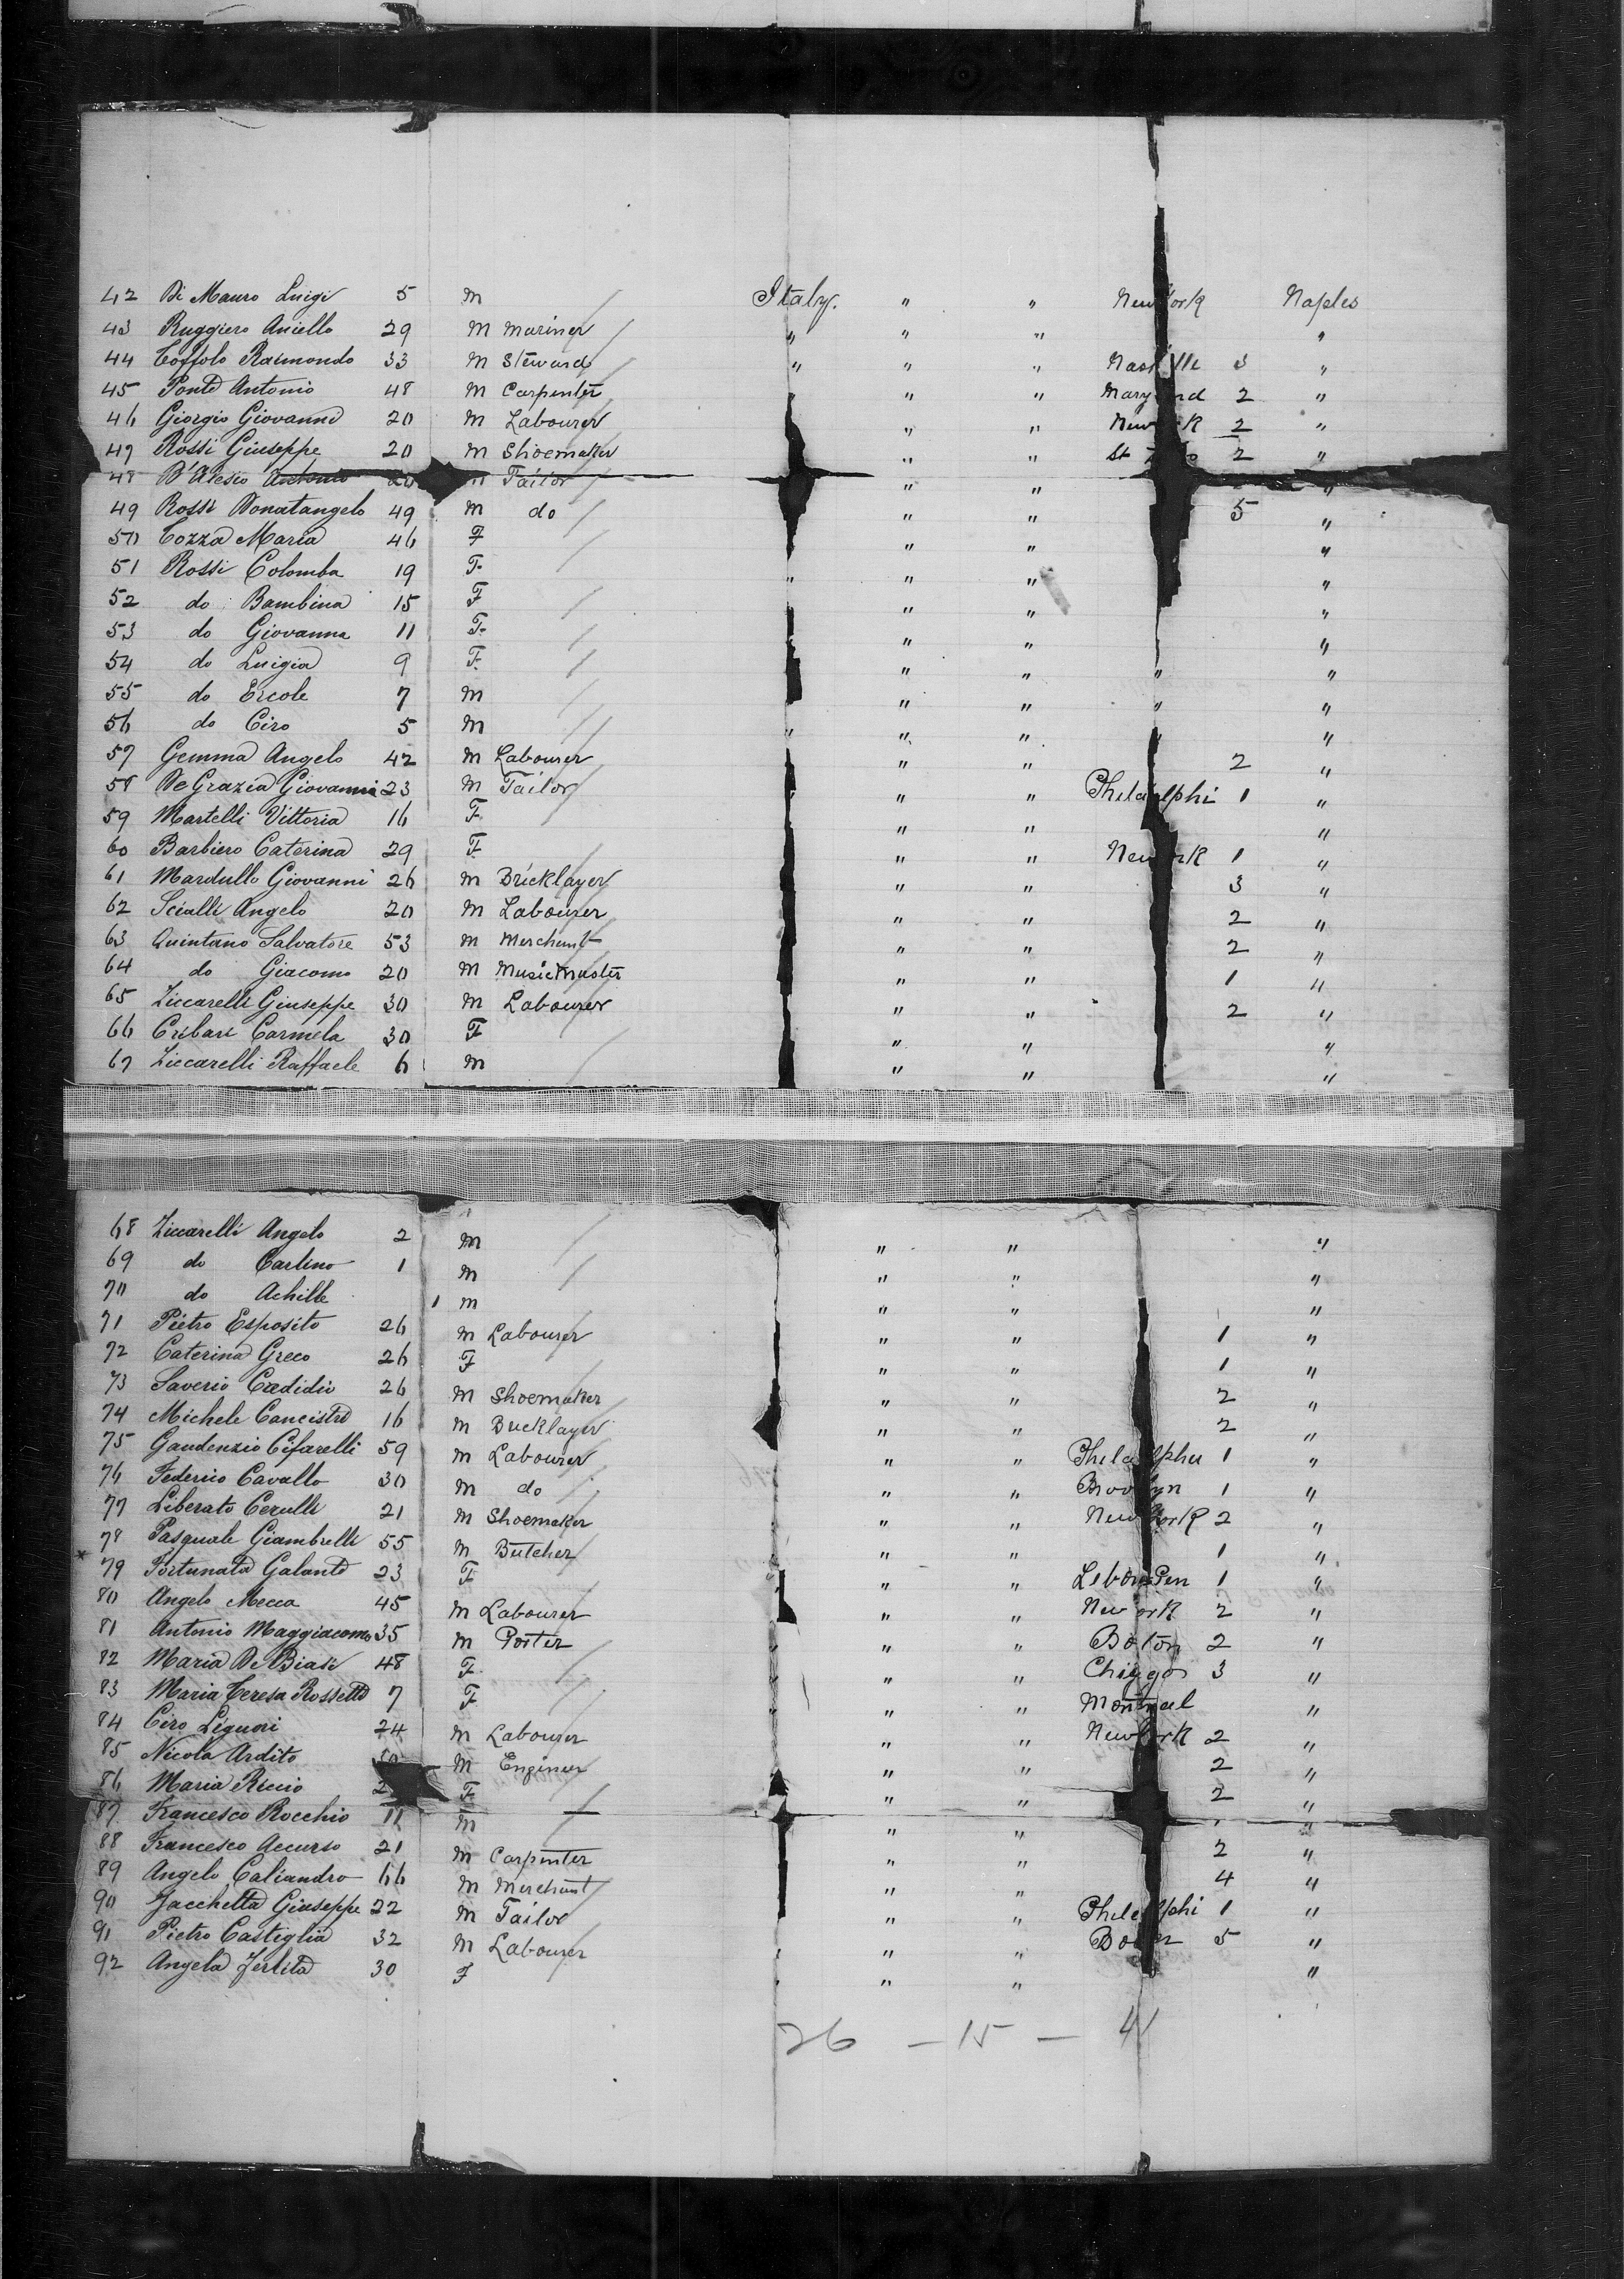 42 Di Mauro Luigi 5 M Italy. " " New York Naples
43 Ruggiero Aniello 29 M Mariner " " " "
44 Toffolo Raimondo 33 M Steward " " " Nash lle 3 "
45 Ponte Antonio 48 M Carpenter " " Mary nd 2 "
46 Giorgio Giovanni 20 M Labourer " " New k 2 "
47 Rossi Giuseppe 20 M Shoemaker " " St 2 "
48 D'Alesio Antonio M Tailor " " "
49 Rossi Donatangelo 49 M do " " 5 "
50 Cozza Maria 46 F " " "
51 Rossi Colomba 19 F. " " " "
52 do Bambina 15 F " " "
53 do Giovanna 11 F. " " "
54 do Luigia 9 F. " " " "
55 do Ercole 7 M " " " "
56 do Ciro 5 M " " " "
57 Gemma Angelo 42 M Labourer " " 2 "
58 De Grazia Giovanni 23 M Tailor " " Philadelphi 1 "
59 Martelli Vittoria 16 F. " " "
60 Barbiero Caterina 29 F. " " New rk 1 "
61 Mardullo Giovanni 26 M Bricklayer " " 3 "
62 Scialli Angelo 20 M Labourer " " 2 "
63 Quintano Salvatore 53 M Merchant " " 2 "
64 do Giacomo 20 M Music Master " " 1 "
65 Ziccarelli Giuseppe 30 M Labourer " " 2 "
66 Cribari Carmela 30 F " " "
67 Ziccarelli Raffaele 6 M " " "
68 Ziccarelli Angelo 2 M " " "
69 do Carlino 1 M " " "
70 do Achille 1 M " " "
71 Pietro Esposito 26 M Labourer " " 1 "
72 Caterina Greco 26 F " " 1 "
73 Saverio Cadidio 26 M Shoemaker " " 2 "
74 Michele Cancistro 16 M Bricklayer " " 2 "
75 Gaudenzio Cifarelli 59 M Labourer " " Philadelphia 1 "
76 Federico Cavallo 30 M do " " Brooklyn 1 "
77 Liberato Cerulli 21 M Shoemaker " " New York 2 "
78 Pasquale Giambrelli 55 M Butcher " " 1 "
79 Fortunata Galante 23 F " " Pen 1 "
80 Angelo Mecca 45 M Labourer " " New ork 2 "
81 Antonio Maggiacomo 35 M Porter " " Boton 2 "
82 Maria De Biase 48 F. " " Chiggo 3 "
83 Maria Teresa Rossetto 7 F " " Montreal "
84 Ciro Liguori 24 M Labourer " " New York 2 "
85 Nicola Ardito M Engineer " " 2 "
86 Maria Riccio 2 F " " 2 "
87 Francesco Rocchio 11 M " " "
88 Francesco Accurso 21 M Carpenter " " 2 "
89 Angelo Caliandro 66 M Merchant " " 4 "
90 Zacchetta Giuseppe 22 M Tailor " " Philadelphi 1 "
91 Pietro Castiglia 32 M Labourer " " 5 "
92 Angela Zerlita 30 F " " "
26 - 15 - 41